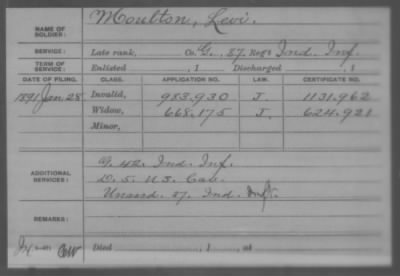 NAME OF SOLDIER: Moulton, Levi.
SERVICE: Late rank, Co. G. 87. Reg't Ind. Inf.
TERM OF SERVICE: Enlisted , 1 Discharged , 1
DATE OF FILING. CLASS. APPLICATION NO. LAW. CERTIFICATE NO.
1891 Jan. 28 Invalid, 983.930 J. 1131.962
Widow, 668.175 J. 624.921
Minor,
ADDITIONAL SERVICES: G. 42. Ind. Inf.
D. 5. U.S. Cav.
Unassd. 87. Ind. Inf.
REMARKS:
Died , 1 , at